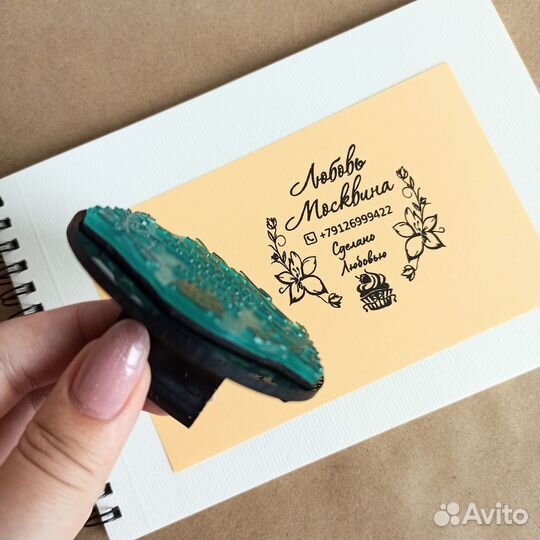 Любовь
Москвина
+79126999422
Сделано
Любовью
Avito